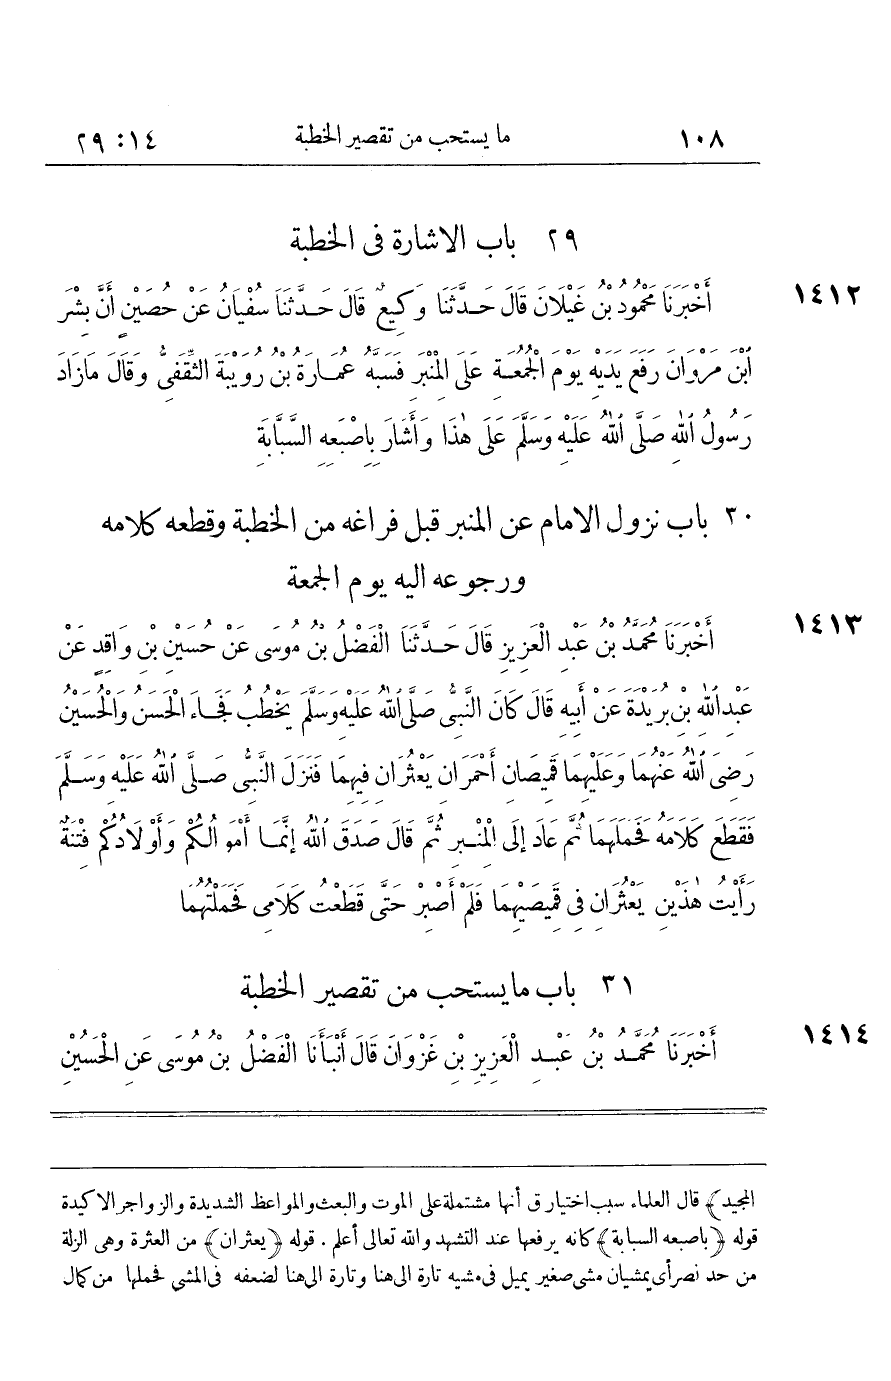 ١٠٨ ما يستحب من تقصير الخطبة ١٤: ٢٩
٢٩ باب الاشارة فى الخطبة
١٤١٢ أَخْبَرَنَا مَحْمُودُ بْنُ غَيْلَانَ قَالَ حَدَّثَنَا وَكِيعٌ قَالَ حَدَّثَنَا سُفْيَانُ عَنْ حُصَيْنٍ أَنَّ بِشْرَ
ابْنَ مَرْوَانَ رَفَعَ يَدَيْهِ يَوْمَ الْجُمُعَةِ عَلَى الْمِنْبَرِ فَسَبَّهُ عُمَارَةُ بْنُ رُوَيْبَةَ الثَّقَفِىُّ وَقَالَ مَا زَادَ
رَسُولُ اللهِ صَلَّى اللهُ عَلَيْهِ وَسَلَّمَ عَلَى هٰذَا وَأَشَارَ بِاصْبَعِهِ السَّبَّابَةِ
٣٠ باب نزول الامام عن المنبر قبل فراغه من الخطبة وقطعه كلامه
ورجوعه اليه يوم الجمعة
١٤١٣ أَخْبَرَنَا مُحَمَّدُ بْنُ عَبْدِ الْعَزِيزِ قَالَ حَدَّثَنَا الْفَضْلُ بْنُ مُوسَى عَنْ حُسَيْنِ بْنِ وَاقِدٍ عَنْ
عَبْدِ اللهِ بْنِ بُرَيْدَةَ عَنْ أَبِيهِ قَالَ كَانَ النَّبِىُّ صَلَّى اللهُ عَلَيْهِ وَسَلَّمَ يَخْطُبُ فَجَاءَ الْحَسَنُ وَالْحُسَيْنُ
رَضِىَ اللهُ عَنْهُمَا وَعَلَيْهِمَا قَمِيصَانِ أَحْمَرَانِ يَعْثُرَانِ فِيهِمَا فَنَزَلَ النَّبِىُّ صَلَّى اللهُ عَلَيْهِ وَسَلَّمَ
فَقَطَعَ كَلَامَهُ فَحَمَلَهُمَا ثُمَّ عَادَ إِلَى الْمِنْبَرِ ثُمَّ قَالَ صَدَقَ اللهُ إِنَّمَا أَمْوَالُكُمْ وَأَوْلَادُكُمْ فِتْنَةٌ
رَأَيْتُ هٰذَيْنِ يَعْثُرَانِ فِى قَمِيصَيْهِمَا فَلَمْ أَصْبِرْ حَتَّى قَطَعْتُ كَلَامِى فَحَمَلْتُهُمَا
٣١ باب ما يستحب من تقصير الخطبة
١٤١٤ أَخْبَرَنَا مُحَمَّدُ بْنُ عَبْدِ الْعَزِيزِ بْنِ غَزْوَانَ قَالَ أَنْبَأَنَا الْفَضْلُ بْنُ مُوسَى عَنِ الْحُسَيْنِ
المجيد﴾ قال العلماء سبب اختيار ق أنها مشتملة على الموت والبعث والمواعظ الشديدة والزواجر الاكيدة
قوله ﴿باصبعه السبابة﴾ كانه يرفعها عند التشهد والله تعالى أعلم. قوله ﴿يعثران﴾ من العثرة وهى الزلة
من حد نصر أى يمشيان مشى صغير يميل فى مشيه تارة الى هنا وتارة الى هنا لضعفه فى المشى فحملها من كمال